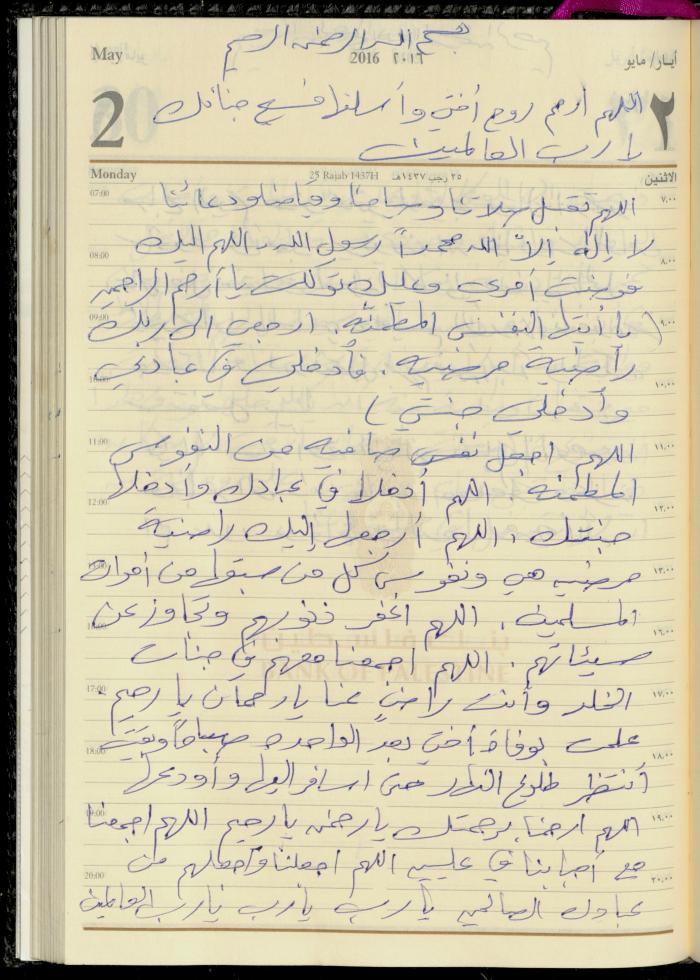 بسم الله الرحمن الرحيم
May
2016 ٢٠١٦
أيار/ مايو
2
٢
اللهم ارحم روح أختي وأسكنها فسيح جناتك
يا رب العالمين
Monday
25 Rajab 1437H ٢٥ رجب ١٤٣٧هـ
الاثنين
07:00 ٧:٠٠
اللهم تقبل صلاتنا وصيامنا وقيامنا ودعائنا
لا إله إلا الله محمداً رسول الله، اللهم اليك
08:00 ٨:٠٠
فوضت أمري وعليك توكلت يا أرحم الراحمين
09:00 ٩:٠٠
(يا أيتها النفس المطمئنة، ارجعي الى ربك
راضية مرضيه، فأدخلي في عبادي
10:00 ١٠:٠٠
وأدخلي جنتي)
11:00 ١١:٠٠
اللهم اجعل نفس صافيه من النفوس
المطمئنه، اللهم أدخلها في عبادك وأدخلها
12:00 ١٢:٠٠
جنتك، اللهم أرجعها إليك راضية
١٣:٠٠
مرضيه هي ونفوس كل من سبقها من أموات
المسلمين، اللهم اغفر ذنوبهم وتجاوز عن
16:00 ١٦:٠٠
سيئاتهم، اللهم اجمعنا معهم في جنات
بنك فلسطين
BANK OF PALESTINE
17:00 ١٧:٠٠
الخلد وأنت راضٍ عنا يا رحمان يا رحيم.
علمت بوفاة أختي بعد الواحده صباحاً وبقيت
18:00 ١٨:٠٠
أنتظر طلوع النهار حتى اسافر اليها وأودعها
19:00 ١٩:٠٠
اللهم ارحمنا برحمتك يا رحمن يا رحيم اللهم اجمعنا
مع أحبابنا في عليين اللهم اجعلنا واجعلهم من
20:00 ٢٠:٠٠
عبادك الصالحين يا رب يا رب يا رب العالمين